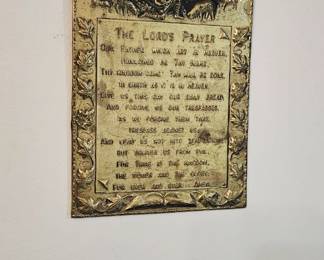 The Lord's Prayer
Our Father which art in Heaven,
Hallowed be Thy name.
Thy kingdom come. Thy will be done,
in earth as it is in Heaven.
Give us this day our daily bread
And forgive us our trespasses,
as we forgive them that
trespass against us.
And lead us not into temptation
But deliver us from evil.
For thine is the kingdom,
the power and the glory.
For ever and ever. Amen.